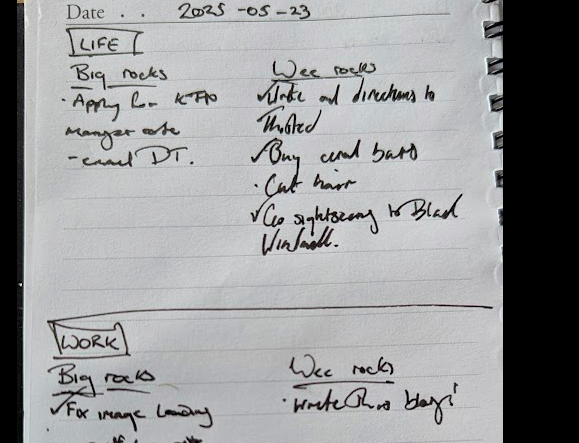 Date . . 2025-05-23
LIFE
Big rocks
· Apply for KTP
manager role
- email DT.
Wee rocks
✓Write out directions to
✓Buy cereal bars
· Cut hair
✓Go sightseeing to Black
Windmill.
WORK
Big rocks
✓Fix image loading
Wee rocks
· write this blog!